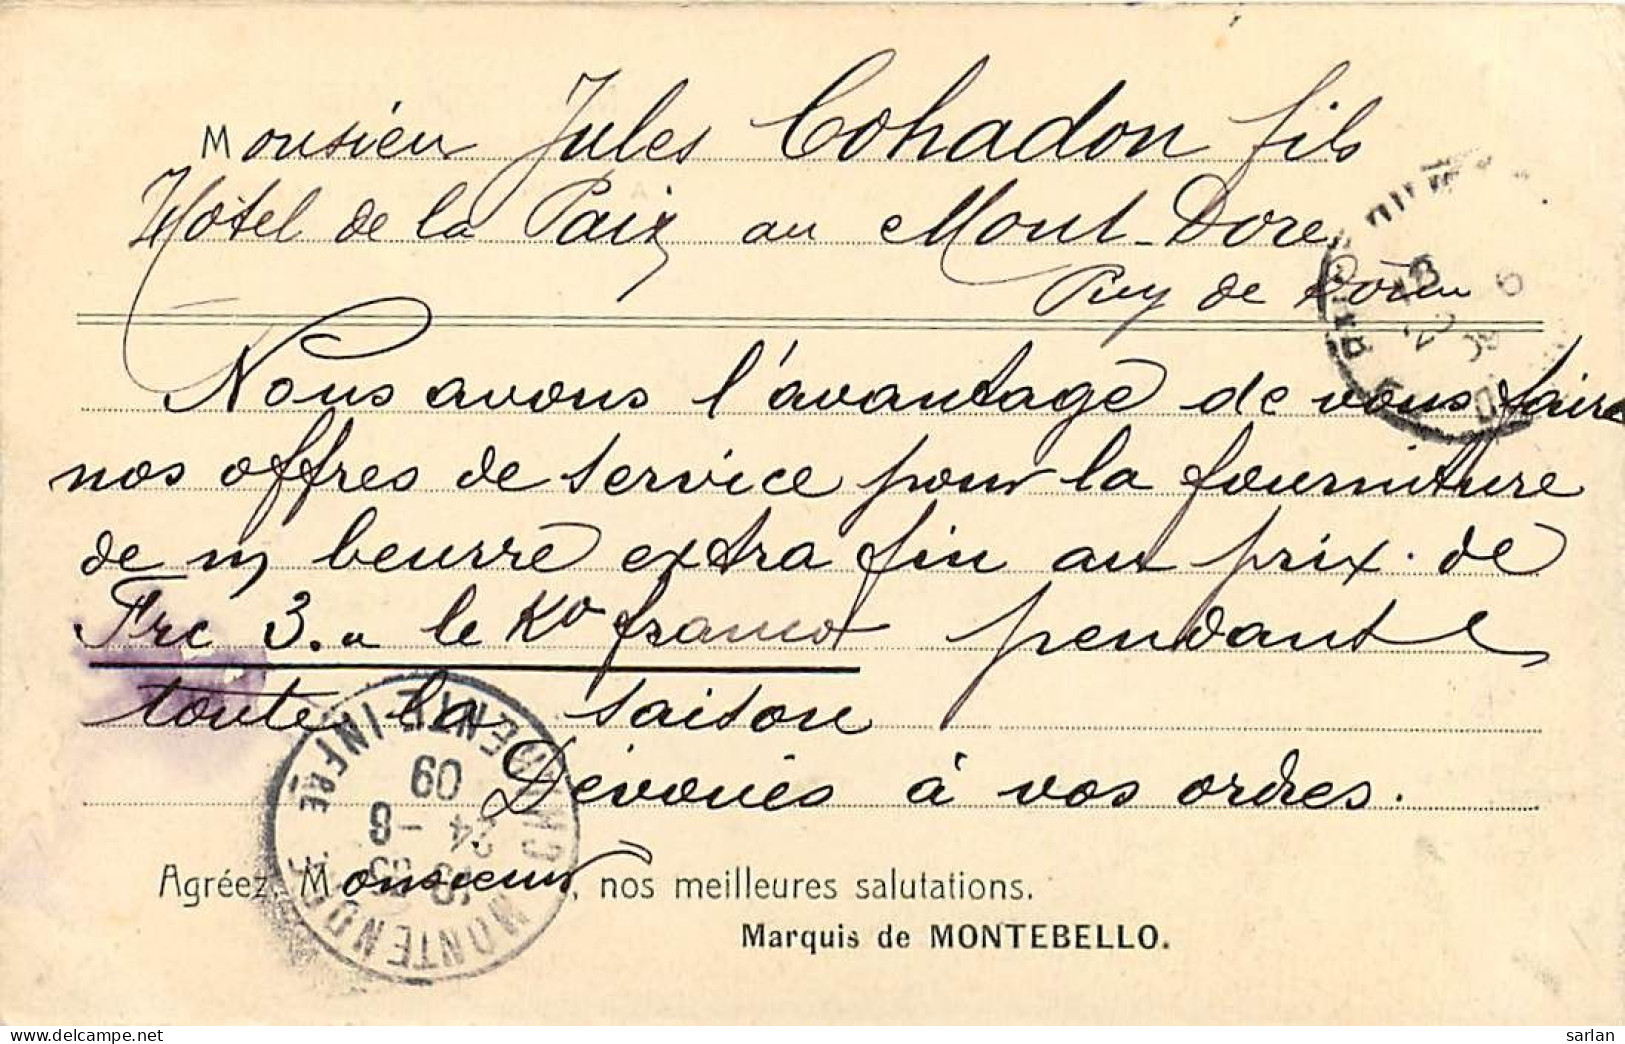 Monsieur Jules Cohadon fils
Hôtel de la Paix au Mont-Dore
Puy de Dôme
Nous avons l'avantage de vous faire
nos offres de service pour la fourniture
de m beurre extra fin au prix de
Frc 3. le Ko franco pendant
toute la saison
Dévoués à vos ordres.
Agréez, Monsieur, nos meilleures salutations.
Marquis de MONTEBELLO.
MONTENDRE
CHARENTE INFRE
24 - 6
09
sarlan